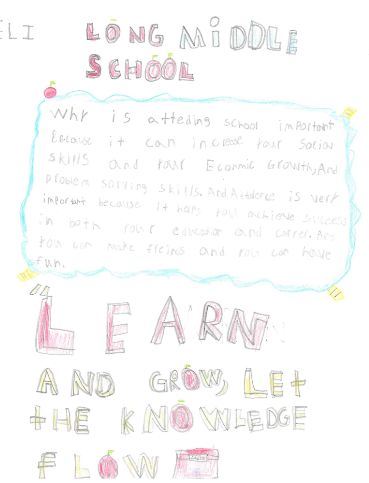 ELI
LONG MiDDLE
SCHOOL
Why is atteding school important
Because it can increase your social
skills and your Ecanmic Growlth,And
problem solving skills. And Attedence is very
important because it haps you achieve success
in both your education and carrer. And
You can make freinds and you can have
fun.
"LEARN
AND GROW, LET
tHE KNOWLEDGE
FLOW